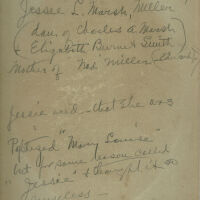 Jessie L. Marsh, Miller
dau. of Charles A. Marsh
& Elizabeth Burnett Smith
Mother of Ned Miller
Jessie said - that she was
Baptized "Mary Louise"
but for some reason called
"Jessie" & kept it so